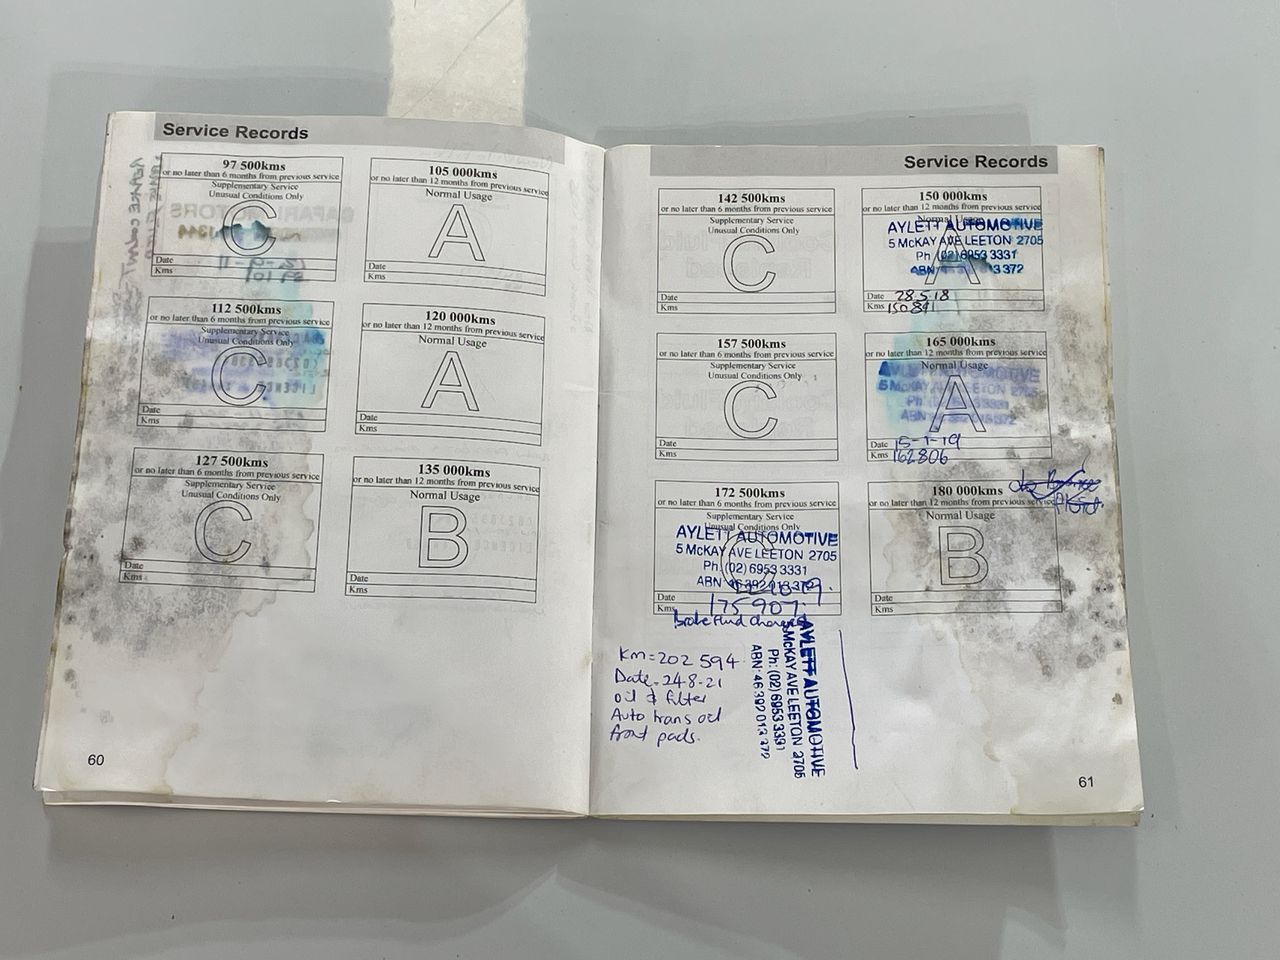 Service Records
97 500kms
or no later than 6 months from previous service
Supplementary Service
Unusual Conditions Only
C
Date
Kms
105 000kms
or no later than 12 months from previous service
Normal Usage
A
Date
Kms
112 500kms
or no later than 6 months from previous service
Supplementary Service
Unusual Conditions Only
C
Date
Kms
120 000kms
or no later than 12 months from previous service
Normal Usage
A
Date
Kms
127 500kms
or no later than 6 months from previous service
Supplementary Service
Unusual Conditions Only
C
Date
Kms
135 000kms
or no later than 12 months from previous service
Normal Usage
B
Date
Kms
60
Service Records
142 500kms
or no later than 6 months from previous service
Supplementary Service
Unusual Conditions Only
C
Date
Kms
150 000kms
or no later than 12 months from previous service
Normal Usage
A
AYLETT AUTOMOTIVE
5 McKAY AVE LEETON 2705
Ph (02) 6953 3331
ABN
Date 28.5.18
Kms 150841
157 500kms
or no later than 6 months from previous service
Supplementary Service
Unusual Conditions Only
C
Date
Kms
165 000kms
or no later than 12 months from previous service
Normal Usage
A
AYLETT AUTOMOTIVE
5 McKAY AVE LEETON 2705
Ph
ABN
Date 15-1-19
Kms 162806
172 500kms
or no later than 6 months from previous service
Supplementary Service
Unusual Conditions Only
C
AYLETT AUTOMOTIVE
5 McKAY AVE LEETON 2705
Ph: (02) 6953 3331
ABN 46 392 013 372
Date
Kms 175907.
Brake Fluid changed
180 000kms
or no later than 12 months from previous service
Normal Usage
B
Date
Kms
Km=202 594
Date-24-8-21
oil & filter
Auto trans oil
front pads.
AYLETT AUTOMOTIVE
5 McKAY AVE LEETON 2705
Ph: (02) 6953 3331
ABN: 46 392 013 372
61